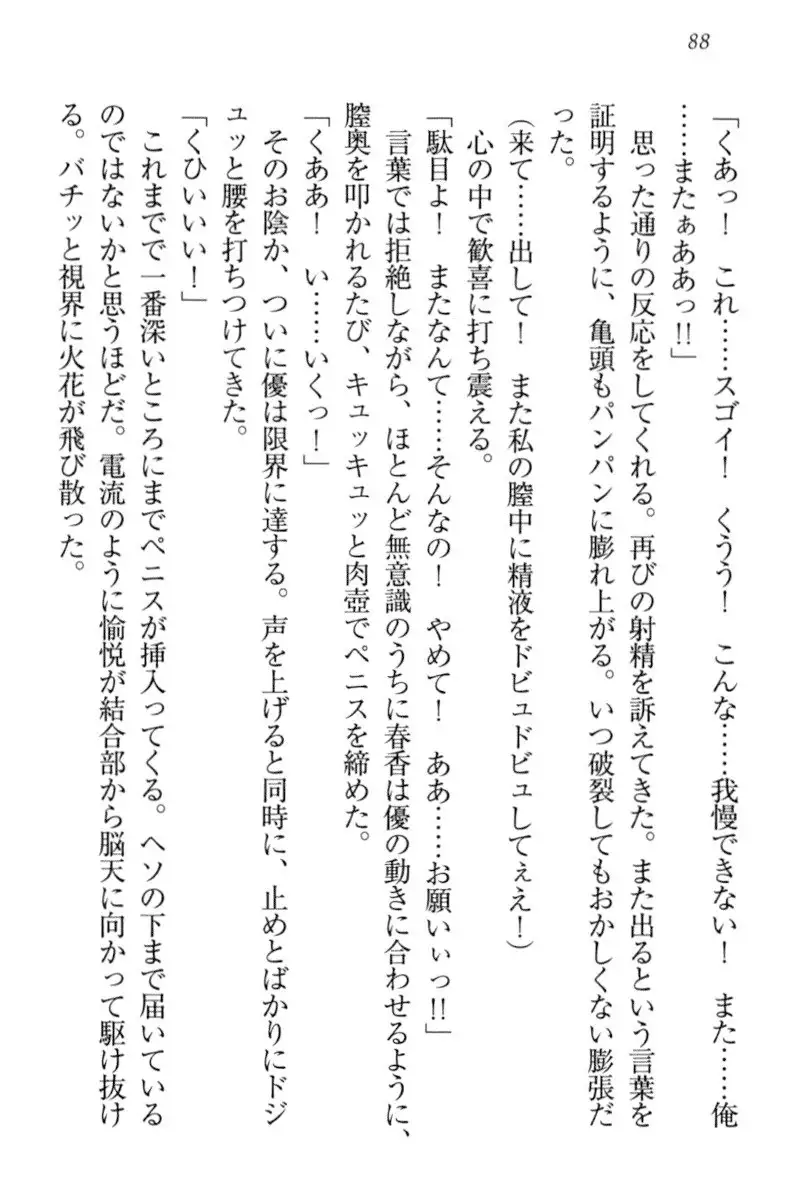 88
「くあっ！　これ……スゴイ！　くうう！　こんな……我慢できない！　また……俺
……またぁああっ!!」
　思った通りの反応をしてくれる。再びの射精を訴えてきた。また出るという言葉を
証明するように、亀頭もパンパンに膨れ上がる。いつ破裂してもおかしくない膨張だ
った。
（来て……出して！　また私の膣中に精液をドビュドビュしてぇえ！）
　心の中で歓喜に打ち震える。
「駄目よ！　またなんて……そんなの！　やめて！　ああ……お願いぃっ!!」
　言葉では拒絶しながら、ほとんど無意識のうちに春香は優の動きに合わせるように、
膣奥を叩かれるたび、キュッキュッと肉壺でペニスを締めた。
「くああ！　い……いくっ！」
　そのお陰か、ついに優は限界に達する。声を上げると同時に、止めとばかりにドジ
ュッと腰を打ちつけてきた。
「くひいいい！」
　これまでで一番深いところにまでペニスが挿入ってくる。ヘソの下まで届いている
のではないかと思うほどだ。電流のように愉悦が結合部から脳天に向かって駆け抜け
る。バチッと視界に火花が飛び散った。